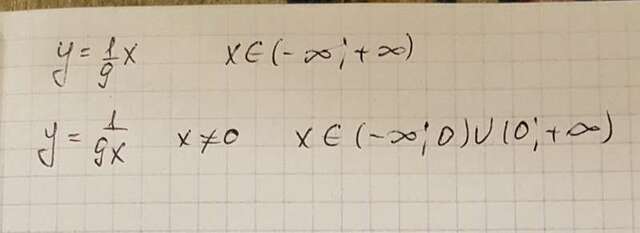 y = 1/9 x x ∈ (-∞; +∞)
y = 1/9x x ≠ 0 x ∈ (-∞; 0) ∪ (0; +∞)